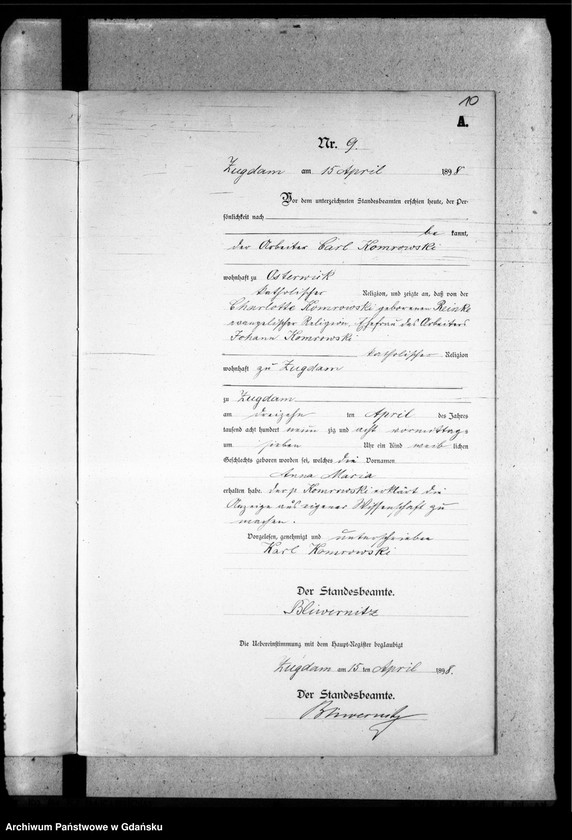 10
A.
Nr. 9.
Zugdam am 15 April 1898
Vor dem unterzeichneten Standesbeamten erschien heute, der Per-
sönlichkeit nach
be kannt,
der Arbeiter Carl Komrowski
wohnhaft zu Osterwick
katholischer Religion, und zeigte an, daß von der
Charlotte Komrowski geborenen Reinke
evangelischer Religion, Ehefrau des Arbeiters
Johann Komrowski
katholischer Religion
wohnhaft zu Zugdam
zu Zugdam
am dreizehn ten April des Jahres
tausend acht hundert neun zig und acht vormittags
um sieben Uhr ein Kind weib lichen
Geschlechts geboren worden sei, welches die Vornamen
Anna Maria
erhalten habe. der p. Komrowski erklärt die
Anzeige aus eigener Wissenschaft zu
machen.
Vorgelesen, genehmigt und unterschrieben
Karl Komrowski
Der Standesbeamte.
Bliwernitz
Die Uebereinstimmung mit dem Haupt-Register beglaubigt
Zugdam am 15 ten April 1898.
Der Standesbeamte.
Bliwernitz
Archiwum Państwowe w Gdańsku